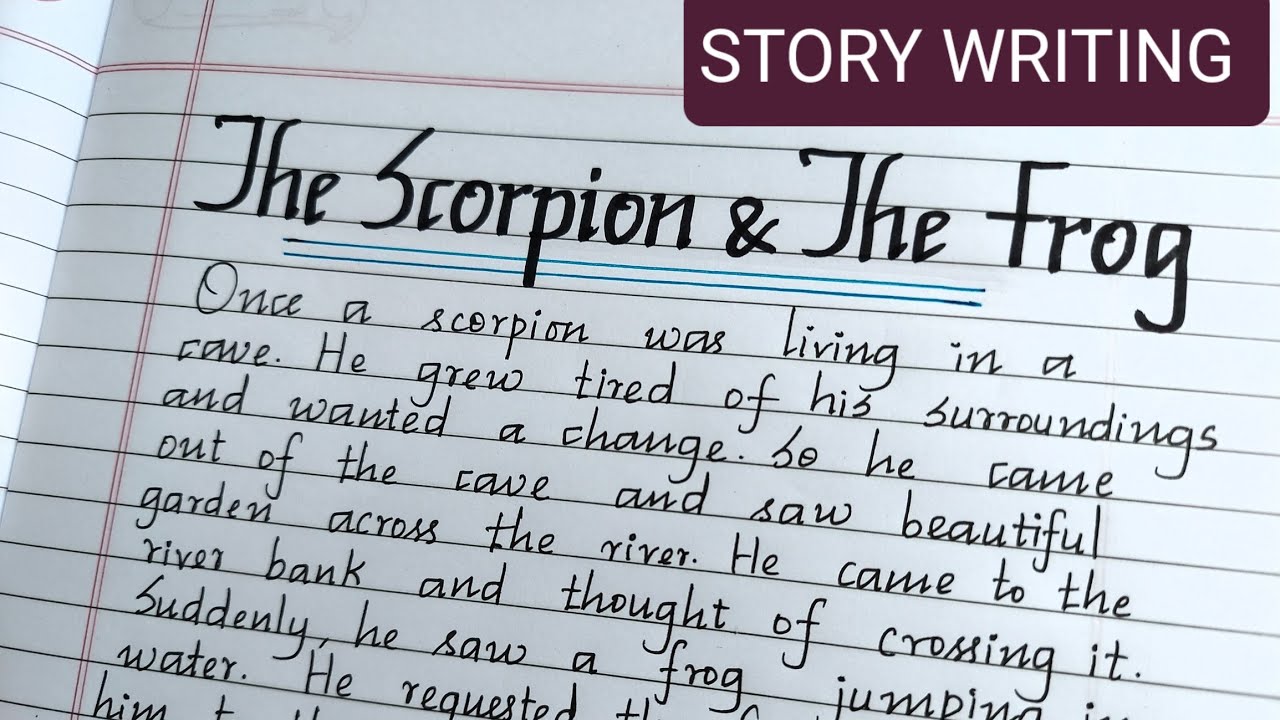 STORY WRITING
The Scorpion & The Frog
Once a scorpion was living in a
cave. He grew tired of his surroundings
and wanted a change. So he came
out of the cave and saw beautiful
garden across the river. He came to the
river bank and thought of crossing it.
Suddenly, he saw a frog jumping in
water. He requested
him